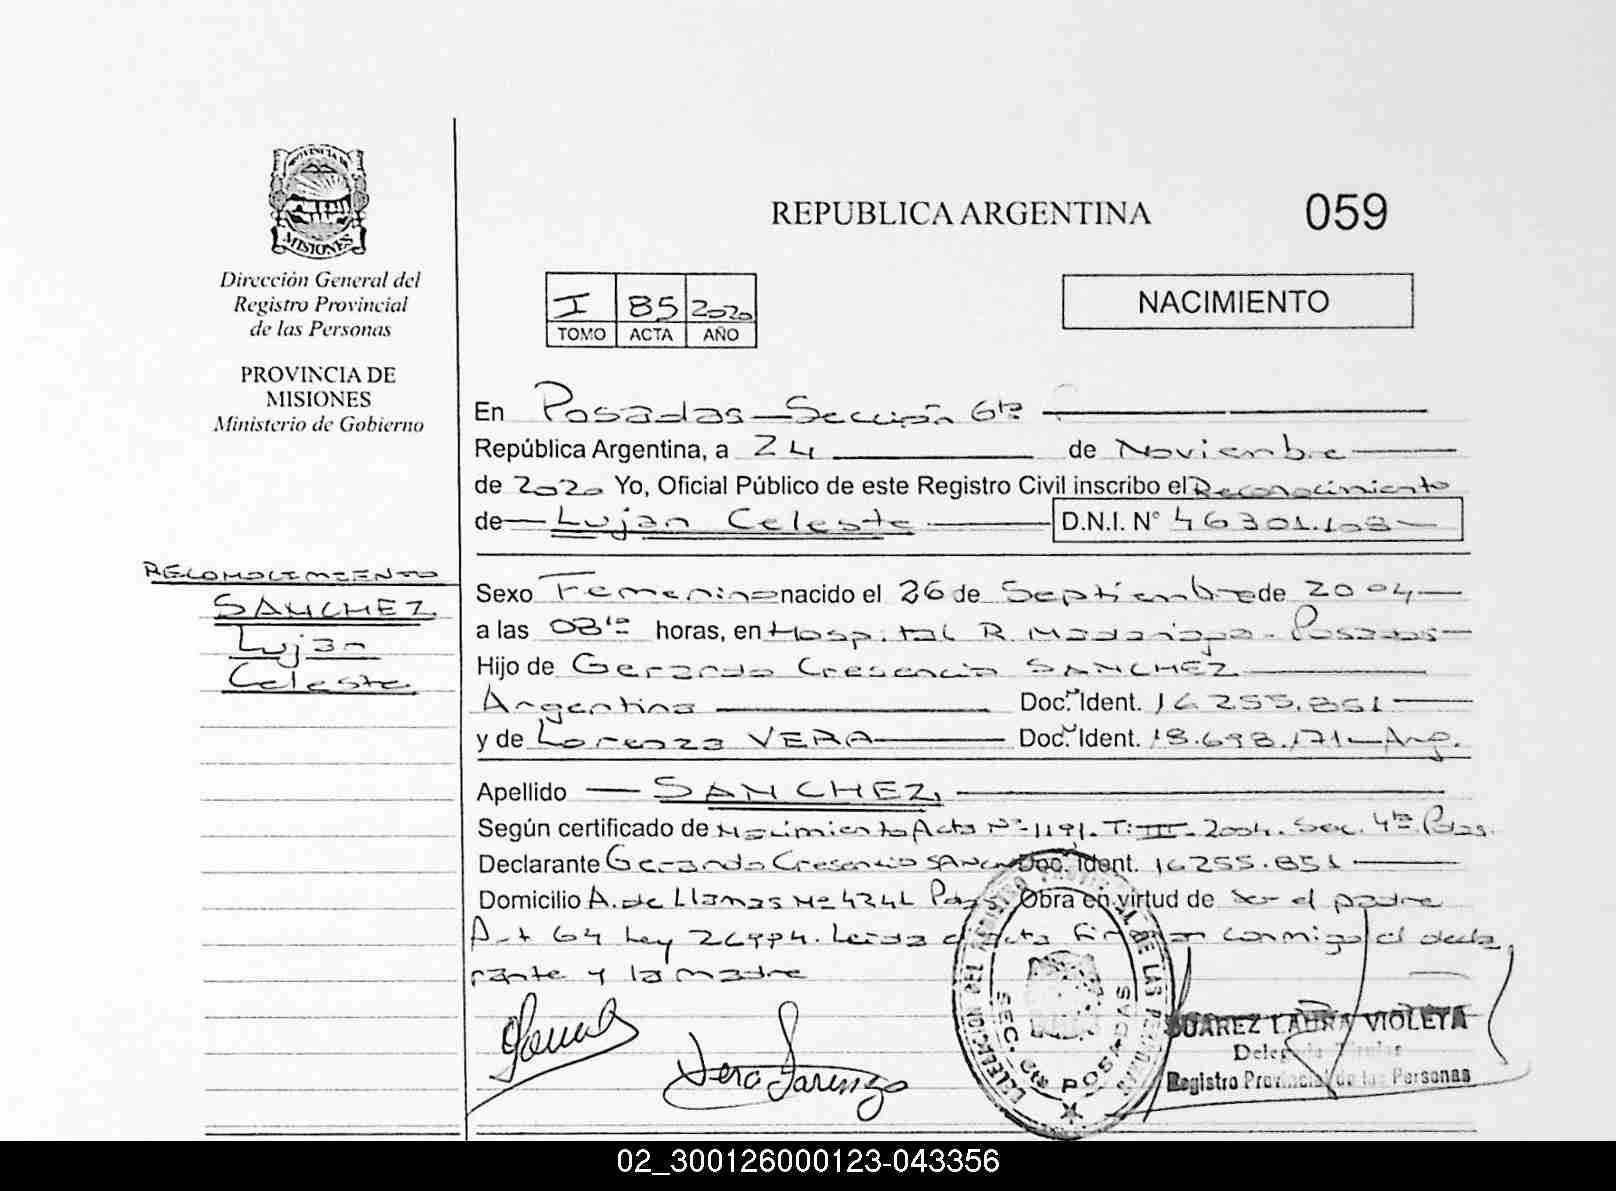 PROVINCIA DE
MISIONES
Dirección General del
Registro Provincial
de las Personas
PROVINCIA DE
MISIONES
Ministerio de Gobierno
REPUBLICA ARGENTINA
059
I 85 2020
TOMO ACTA AÑO
NACIMIENTO
En Posadas - Sección 6ta
República Argentina, a 24 de Noviembre
de 2020 Yo, Oficial Público de este Registro Civil inscribo el Reconocimiento
de Lujan Celeste D.N.I. N° 46301.108
RECONOCIMIENTO
SANCHEZ
Lujan
Celeste
Sexo Femenino nacido el 26 de Septiembre de 2004
a las 08 horas, en Hospital R. Madariaga - Posadas
Hijo de Gerardo Cresencio SANCHEZ
Argentina Doc. Ident. 16.255.851
y de Lorenza VERA Doc. Ident. 18.698.171 - Arg.
Apellido SANCHEZ
Según certificado de Nacimiento Acta N° 1191. T: III - 2004. Sec. 4ta Pdas.
Declarante Gerardo Cresencio SANCHEZ Doc. Ident. 16.255.851
Domicilio A. de Llamas N° 4241 Pdas Obra en virtud de ser el padre
Art 64 Ley 26994. Leida el acta firman conmigo el decla
rante y la madre
Vera Lorenza
SEC. 6ta POSADAS
SUAREZ LAURA VIOLETA
Delegada Titular
Registro Provincial de las Personas
02_300126000123-043356